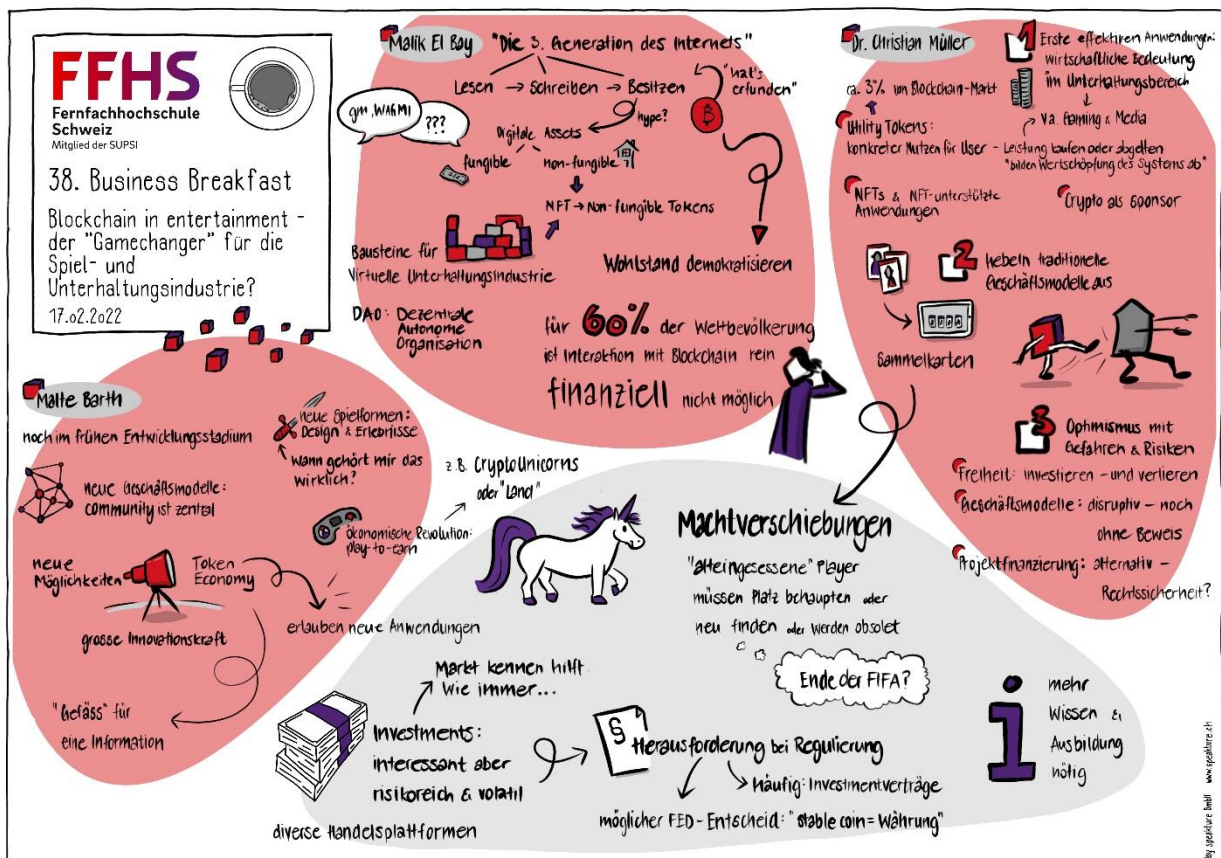 FFHS
Fernfachhochschule
Schweiz
Mitglied der SUPSI
38. Business Breakfast
Blockchain in entertainment -
der "Gamechanger" für die
Spiel- und
Unterhaltungsindustrie?
17.02.2022
Malik El Bay
"Die 3. Generation des Internets"
Lesen → Schreiben → Besitzen
"hat's
erfunden"
gm, WAGMI
???
hype?
Digitale Assets
fungible
non-fungible
NFT → Non-fungible Tokens
Bausteine für
Virtuelle Unterhaltungsindustrie
Wohlstand demokratisieren
DAO: Dezentrale
Autonome
Organisation
für 60% der Weltbevölkerung
ist Interaktion mit Blockchain rein
finanziell nicht möglich
Dr. Christian Müller
1 Erste effektiven Anwendungen:
wirtschaftliche Bedeutung
im Unterhaltungsbereich
ca. 3% von Blockchain-Markt
v.a. Gaming & Media
Utility Tokens:
konkreter Nutzen für User - Leistung kaufen oder abgelten
"bilden Wertschöpfung des Systems ab"
NFTs & NFT-unterstützte
Anwendungen
Crypto als Sponsor
2 hebeln traditionelle
Geschäftsmodelle aus
Sammelkarten
3 Optmismus mit
Gefahren & Risiken
Freiheit: investieren - und verlieren
Geschäftsmodelle: disruptiv - noch
ohne Beweis
Projektfinanzierung: alternativ -
Rechtssicherheit?
Malte Barth
noch im frühen Entwicklungsstadium
neue Spielformen:
Design & Erlebnisse
Wann gehört mir das
wirklich?
neue Geschäftsmodelle:
community ist zentral
ökonomische Revolution:
play-to-earn
z.B. CryptoUnicorns
oder "Land"
neue
Möglichkeiten
Token
Economy
grosse Innovationskraft
erlauben neue Anwendungen
"Gefäss" für
eine Information
Machtverschiebungen
"alteingesessene" Player
müssen Platz behaupten oder
neu finden oder werden obsolet
Ende der FIFA?
Markt kennen hilft
wie immer...
Investments:
interessant aber
risikoreich & volatil
diverse Handelsplattformen
§
Herausforderung bei Regulierung
häufig: Investmentverträge
möglicher FED-Entscheid: "stable coin = Währung"
i
mehr
Wissen &
Ausbildung
nötig
by speakture GmbH www.speakture.ch